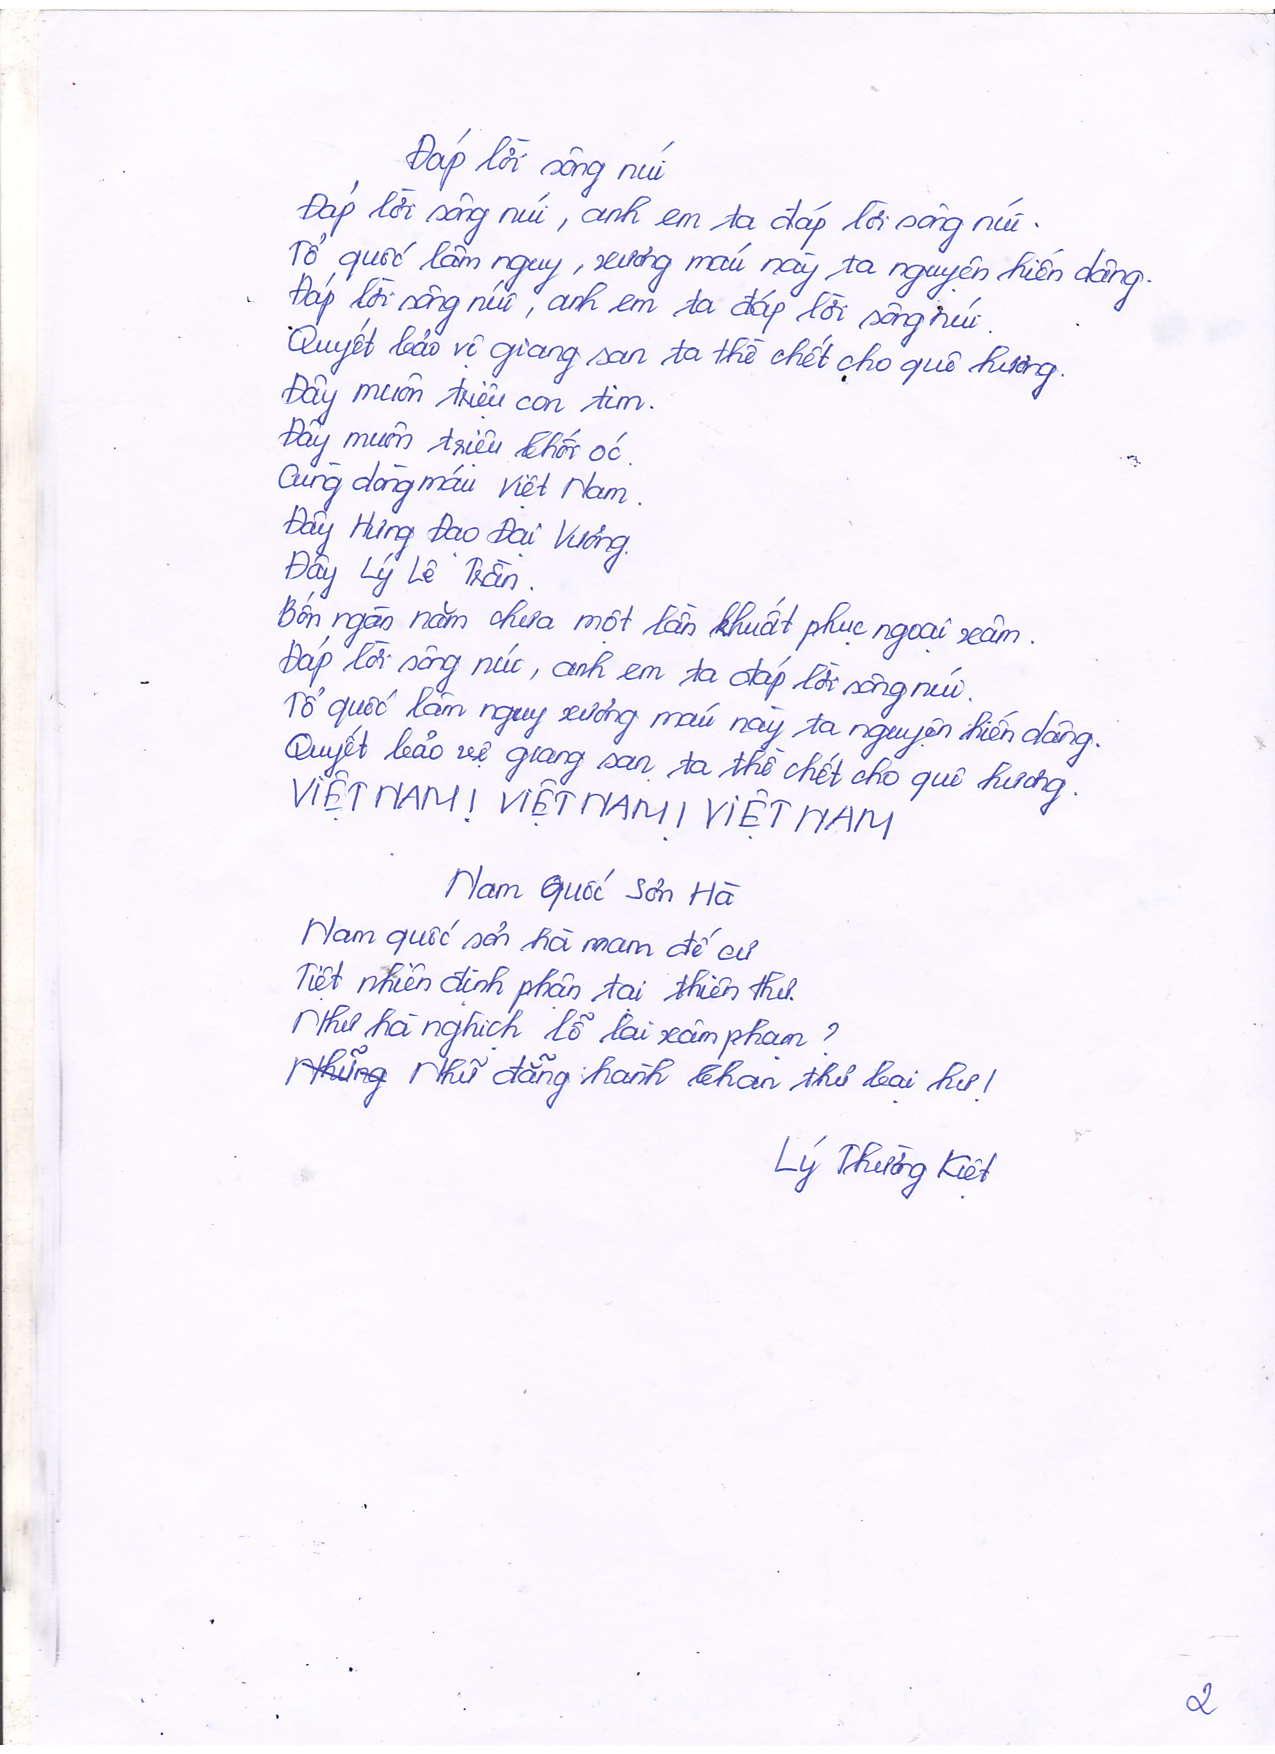 Đáp lời sông núi
Đáp lời sông núi, anh em ta đáp lời sông núi.
Tổ quốc lâm nguy, xương máu này ta nguyện hiến dâng.
Đáp lời sông núi, anh em ta đáp lời sông núi.
Quyết bảo vệ giang san ta thề chết cho quê hương.
Đây muôn triệu con tim.
Đây muôn triệu khối óc.
Cùng dòng máu Việt Nam.
Đây Hưng Đạo Đại Vương.
Đây Lý Lê Trần.
Bốn ngàn năm chưa một lần khuất phục ngoại xâm.
Đáp lời sông núi, anh em ta đáp lời sông núi.
Tổ quốc lâm nguy xương máu này ta nguyện hiến dâng.
Quyết bảo vệ giang san ta thề chết cho quê hương.
VIỆT NAM! VIỆT NAM! VIỆT NAM
Nam Quốc Sơn Hà
Nam quốc sơn hà nam đế cư
Tiệt nhiên định phận tại thiên thư.
Như hà nghịch lỗ lai xâm phạm?
Những Nhữ đẳng hành khan thủ bại hư!
Lý Thường Kiệt
2